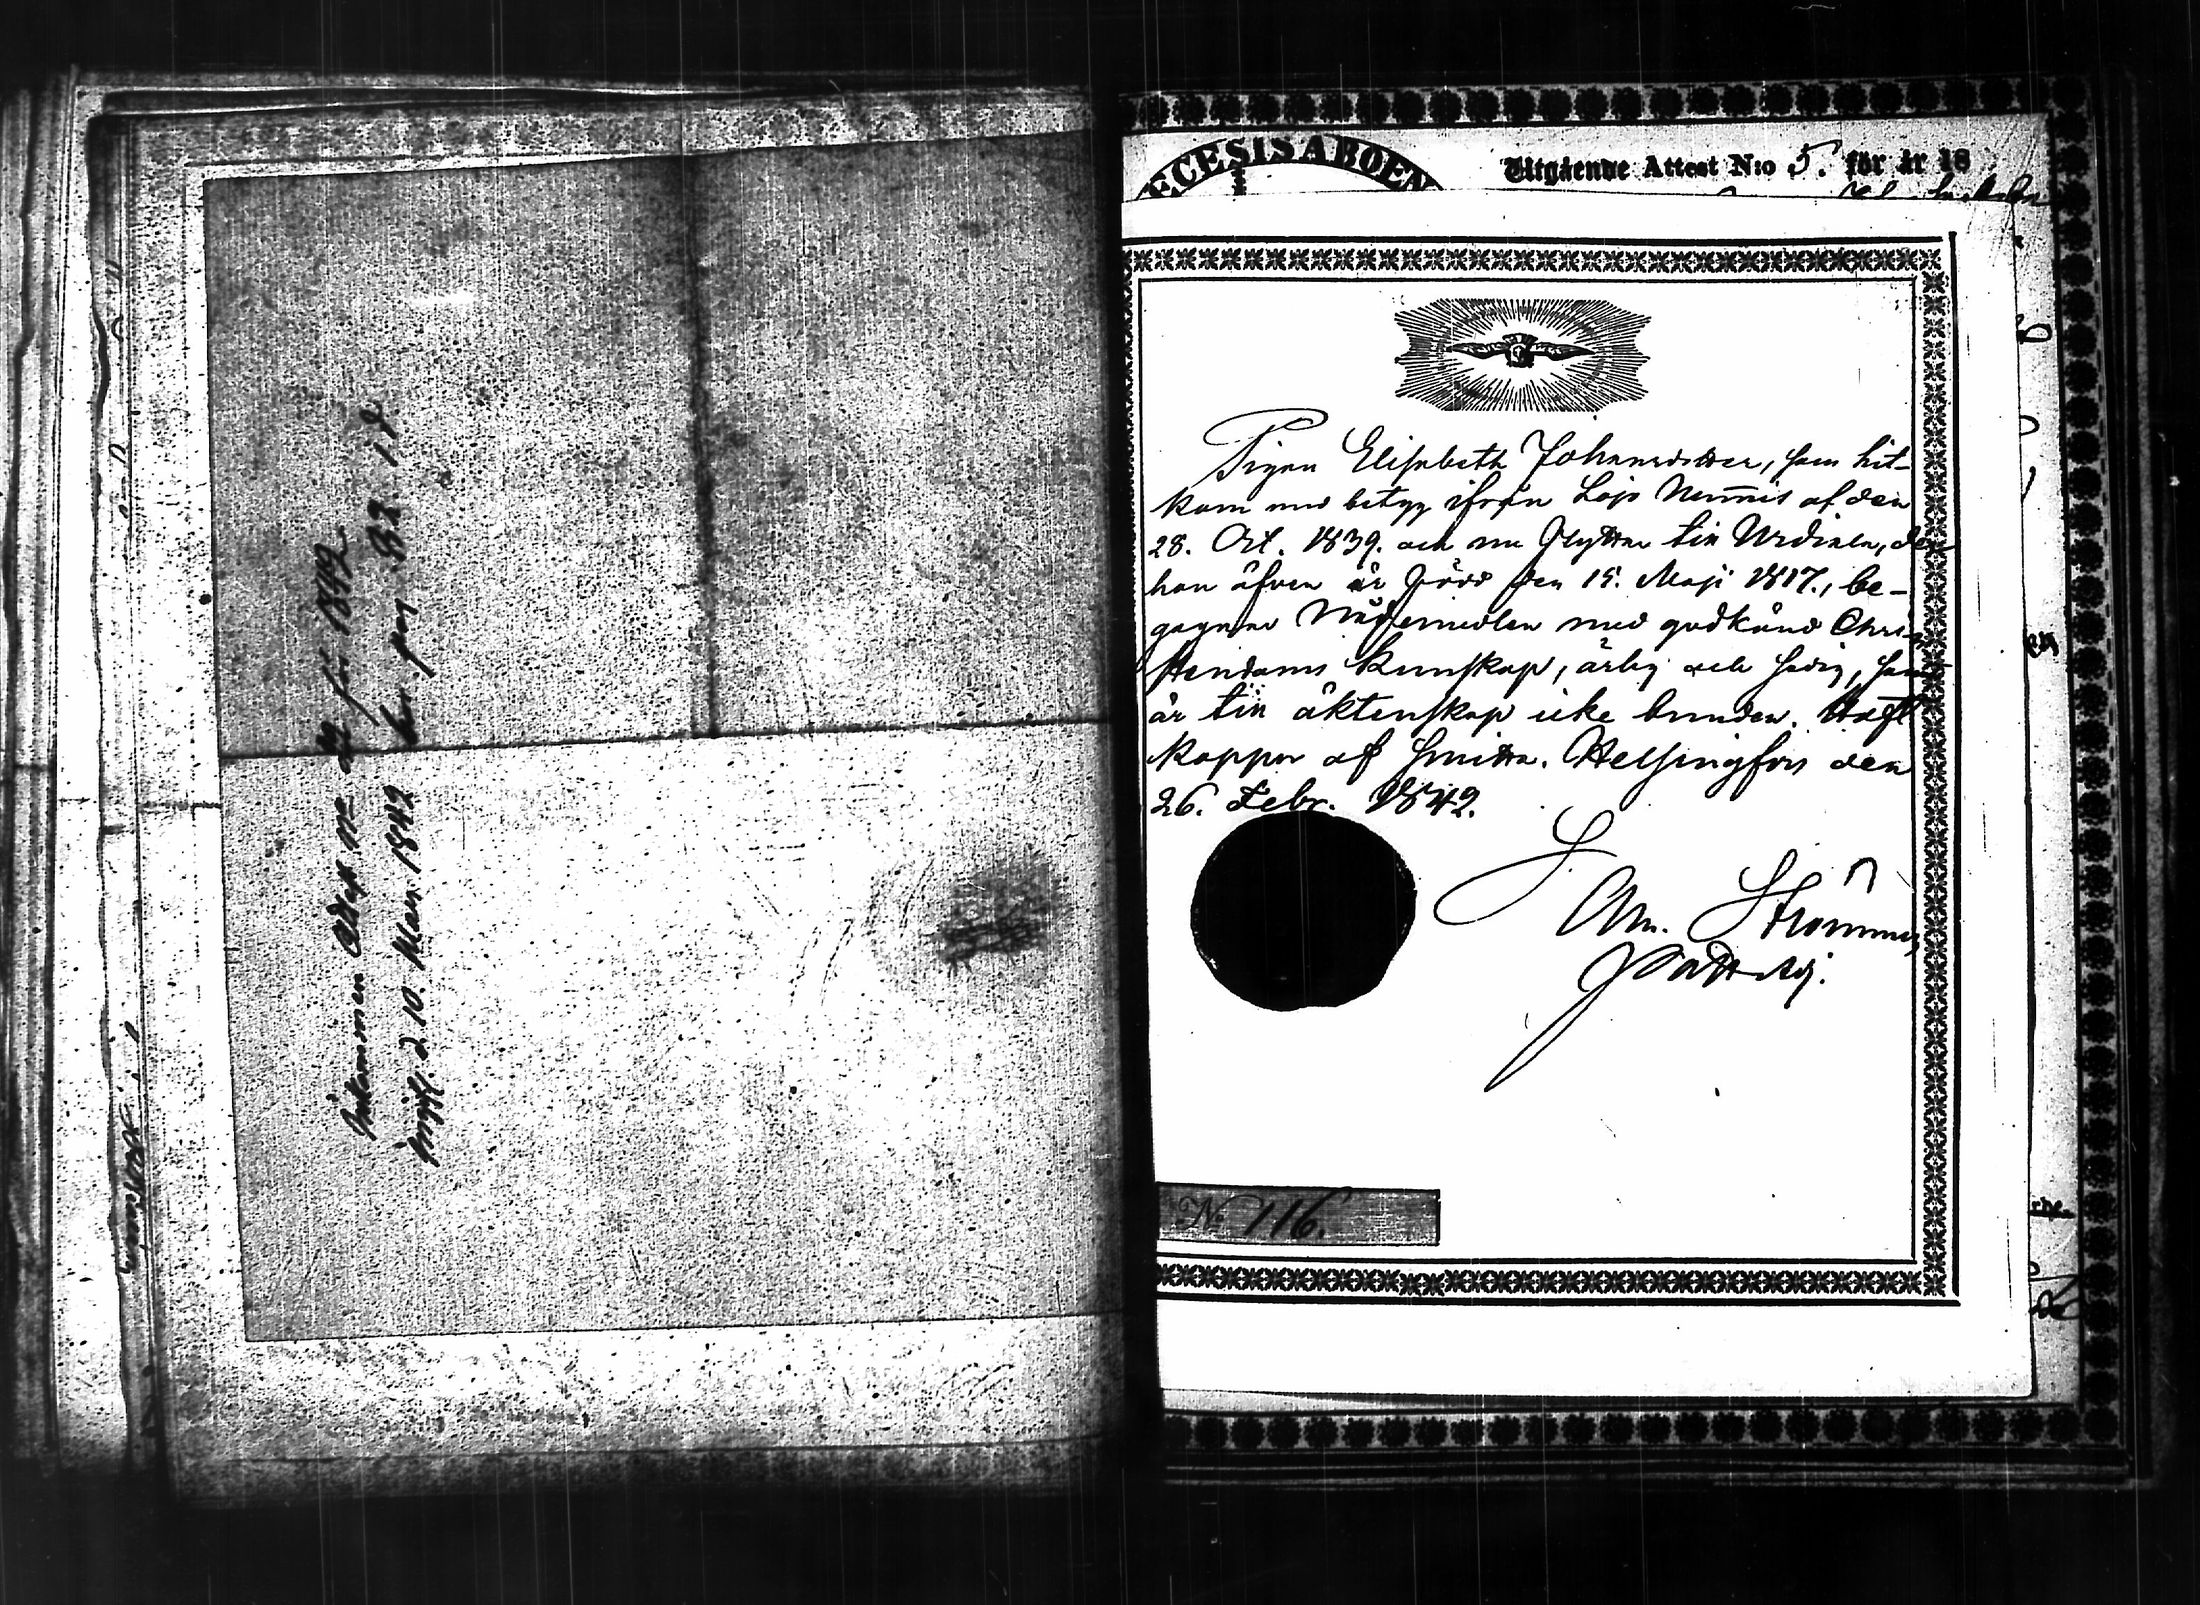 Inkommen Attest No 11 för 1842
inskr. d. 10. Mars 1842
ECESIS ABOEN
Utgående Attest N:o 5. för år 18
Pigan Elisabeth Johansdotter, som hit-
kom med betyg ifrån Lojo Nummis af den
28. Oct. 1839. och nu flyttar till Urdiala, der
hon äfven är född den 15. Maji 1817, be-
gagnar Nådemedlen med godkänd Chri-
stendoms kunskap, ärlig och sedig, samt
är till äktenskap icke bunden. Haft
koppor af smitta. Helsingfors den
26. Febr. 1842.
Strömmer
Past. Adj.
No 116.